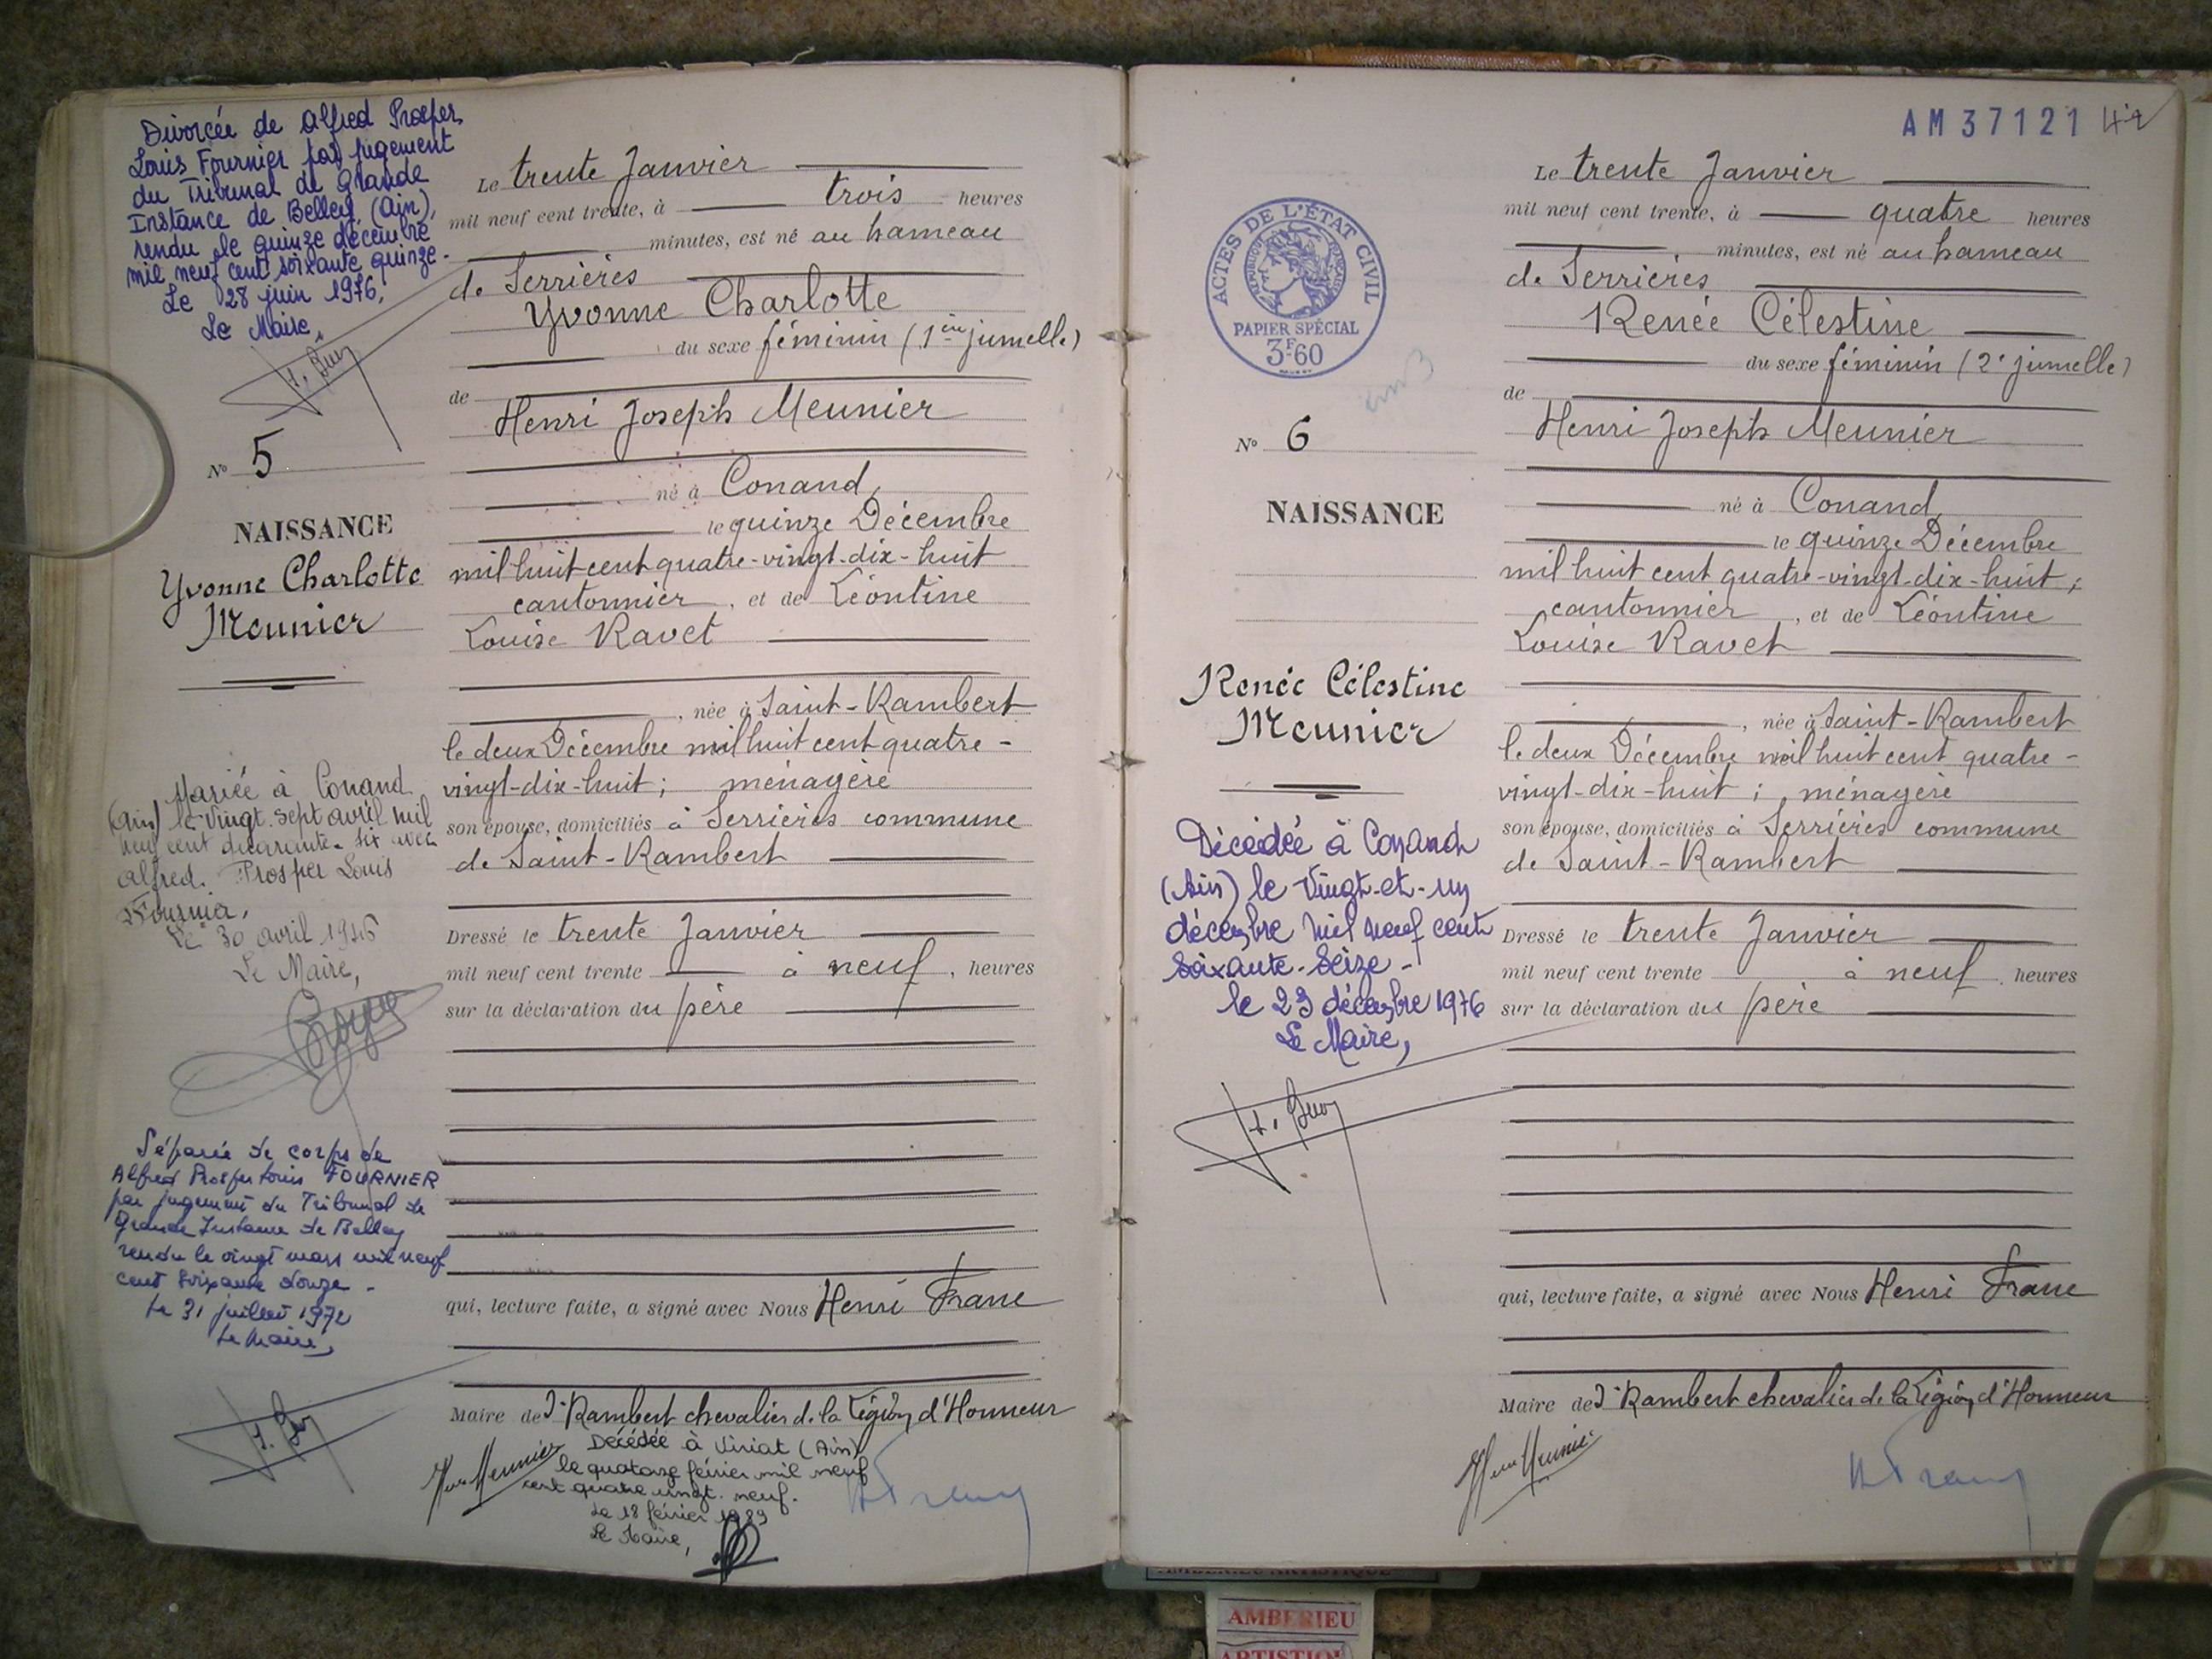 Divorcée de Alfred Prosper
Louis Fournier par jugement
du Tribunal de Grande
Instance de Belley, (Ain),
rendu le quinze décembre
mil neuf cent soixante quinze.
Le 28 juin 1976,
Le Maire,
N° 5
NAISSANCE
Yvonne Charlotte
Meunier
Mariée à Conand
(Ain) le vingt-sept avril mil
neuf cent quarante-six avec
Alfred Prosper Louis
Fournier.
Le 30 avril 1946
Le Maire,
Séparée de corps de
Alfred Prosper Louis FOURNIER
par jugement du Tribunal de
Grande Instance de Belley
rendu le vingt mars mil neuf
cent soixante douze -
Le 31 juillet 1972
Le Maire,
Le trente Janvier
mil neuf cent trente, à trois heures
minutes, est né au hameau
de Serrières
Yvonne Charlotte
du sexe féminin (1ère jumelle)
de
Henri Joseph Meunier
né à Conand,
le quinze Décembre
mil huit cent quatre-vingt-dix-huit
cantonnier, et de Léontine
Louise Ravet
, née à Saint-Rambert
le deux Décembre mil huit cent quatre-
vingt-dix-huit; ménagère
son épouse, domiciliés à Serrières commune
de Saint-Rambert
Dressé le trente Janvier
mil neuf cent trente à neuf, heures
sur la déclaration du père
qui, lecture faite, a signé avec Nous Henri Franc
Maire de St Rambert chevalier de la Légion d'Honneur
Décédée à Viriat (Ain)
le quatorze février mil neuf
cent quatre vingt-neuf.
Le 18 février 1989
Le Maire,
AM 37121 42
ACTES DE L'ÉTAT CIVIL
RÉPUBLIQUE FRANÇAISE
PAPIER SPÉCIAL
3F60
N° 6
NAISSANCE
Renée Célestine
Meunier
Décédée à Conand
(Ain) le vingt-et-un
décembre mil neuf cent
soixante-seize -
le 23 décembre 1976
Le Maire,
Le trente Janvier
mil neuf cent trente, à quatre heures
minutes, est né au hameau
de Serrières
Renée Célestine
du sexe féminin (2e jumelle)
de
Henri Joseph Meunier
né à Conand,
le quinze Décembre
mil huit cent quatre-vingt-dix-huit;
cantonnier, et de Léontine
Louise Ravet
, née à Saint-Rambert
le deux Décembre mil huit cent quatre-
vingt-dix-huit; ménagère
son épouse, domiciliés à Serrières commune
de Saint-Rambert
Dressé le trente Janvier
mil neuf cent trente à neuf heures
sur la déclaration du père
qui, lecture faite, a signé avec Nous Henri Franc
Maire de St Rambert chevalier de la Légion d'Honneur
AMBERIEU ARTISTIQUE
AMBERIEU